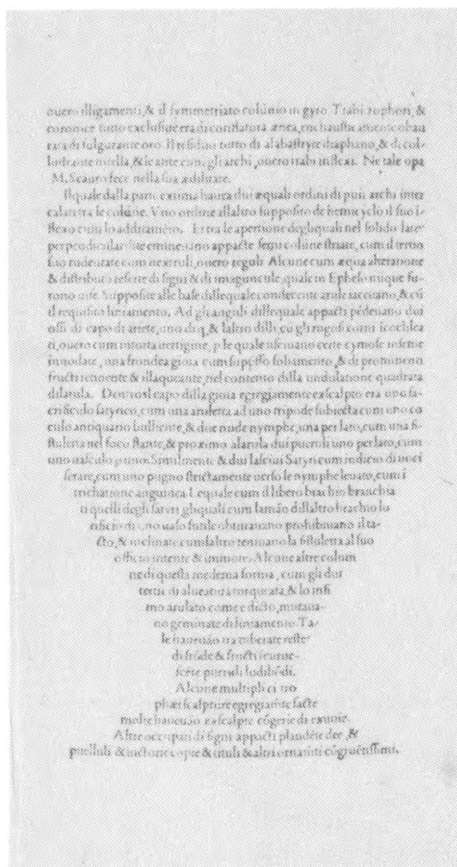 ouero illigamenti, & il symmetriato colũnio in gyro. Trabi zophori, &
coronice tutto exclusiue era di conflatura ænea, cum
rara di fulgurante oro. Il residuo tutto di alabastryte diaphano, & di col
lustrante nitella, & le ante cum gli archi, ouero trabi inflexi. Ne tale opa
M. Scauro fece nella sua ædilitate.
Il quale dalla parte extima hauea dui æquali ordini di puii archi inter
calati tra le colũne. Vno ordine all altro supposito de hemicyclo il suo i-
flexo cum lo additamẽto. Et tra le apertione degli quali nel solido late
perpendiculariste emineuano appacte semicolune striate, cum il tertio
suo rudentate cum nextruli, ouero reguli. Alcune cum æqua alteratione
& distributo referte di signi & di imaguncule, quale in Epheso nũque fu-
rono uise. Supposite alle base dille quale condecente arule iaceuano, & cũ
il requisito liniamento. Ad gli anguli dille quale appacti pẽdeuano dui
ossi di capo di ariete, uno diq, & laltro dilli, cu gli rugosi corni icochlea
ti, ouero cum intorta uertigine, p le quale usciuano certe cymose infeme
innodate, una frondea gioia cum suppesso fobamento, & di prominenti
fructi renoente & illaqueante, nel contento dilla undulatione quadrata
dilarula. Dentro il capo dilla gioia egregiamente exscalpto era uno sa-
crificulo satyrico, cum una aruletta ad uno tripode subiecta cum uno co
culo antiquario bulliente, & due nude nymphe, una per lato, cum una fi-
stuletta nel foco flante, & proximo alarola dui pueruli uno per lato, cum
uno uasculo p uno. Similmente & dui lasciui Satyri cum indicio di uoci
ferare, cum uno pugno strictamente uerso le nymphe leuato, cum i
trichatione anguinea. Le quale cum il libero brachio branchia
ti quelli degli satyri gli quali cum la mão dillaltro brachio lo
rificio di uno uaso futile obturauano prohibiuano il ta-
cto, & inclinate cum laltro teniuano la fistuletta al suo
officio intente & immote. Alcune altre colum
ne di questa medema forma, cum gli dui
tertii di alueatura torqueata, & lo infi
mo arulato come e dicto, mutaua-
no geminate di liniamento. Ta-
le haueuão tra ruberate reste
di frõde & fructi
pueruli ludibũdi.
Alcune multiplici tro
phæi scalpture egregiamẽte facte
molte haueuão exscalpte cõgerie di exuuie.
Altre occupati di signi appacti plaudẽte dee, &
puelluli & uictorie copie & tituli & altri ornamẽti cõgruẽtissimi.